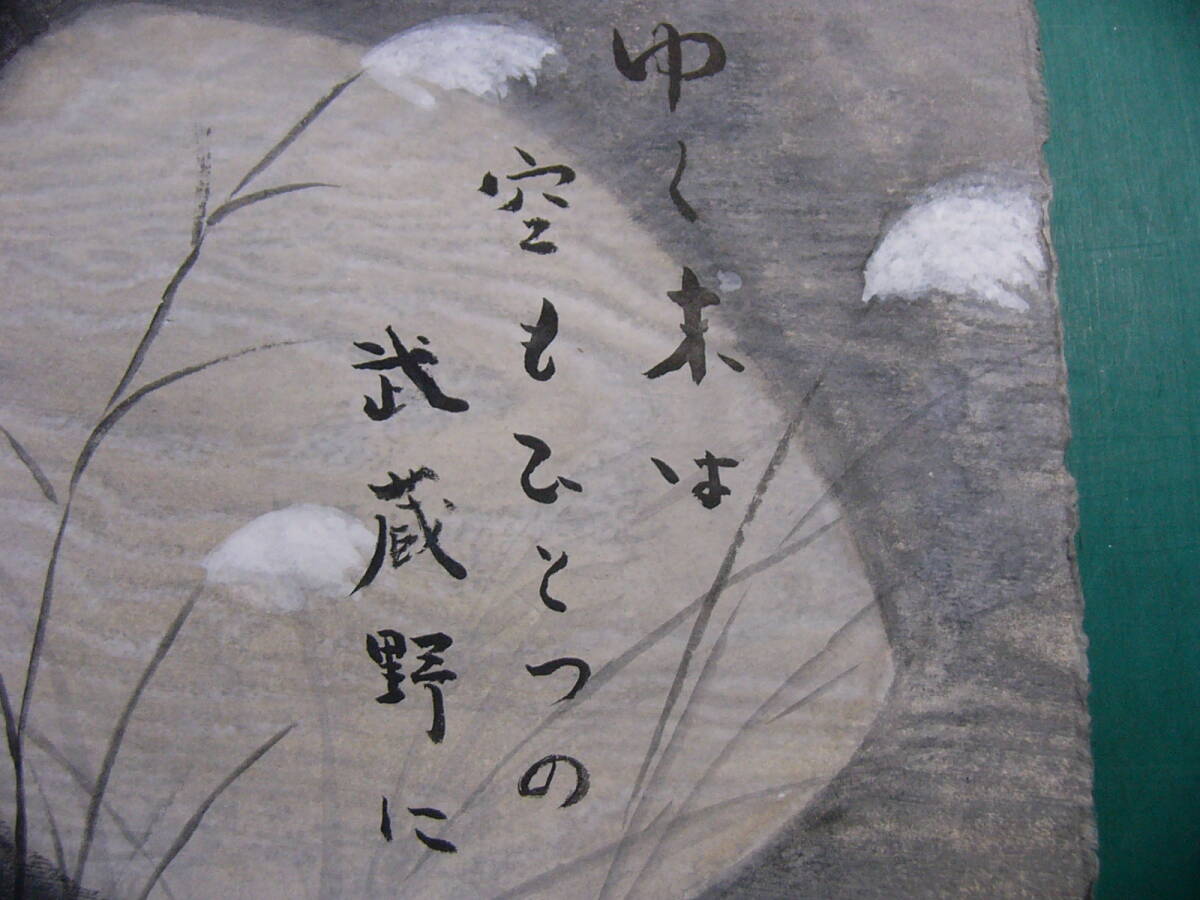 ゆく末は
空もひとつの
武蔵野に